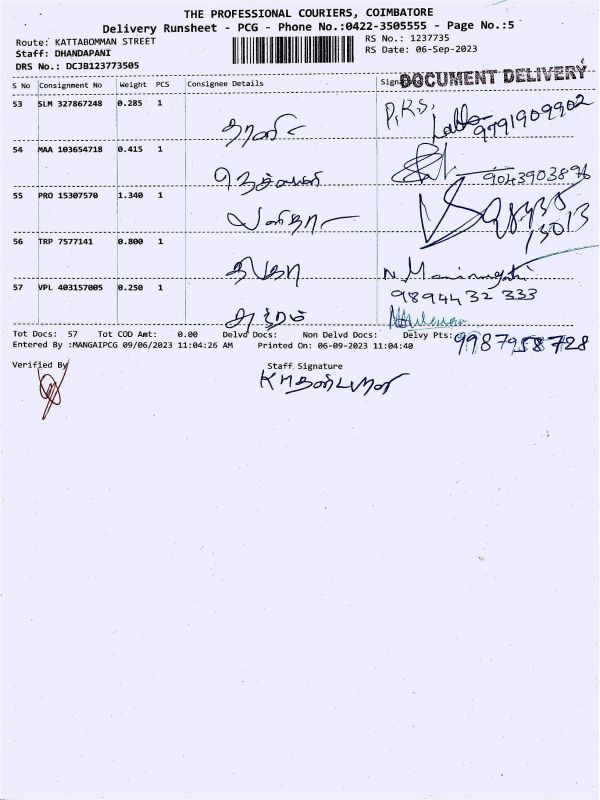 THE PROFESSIONAL COURIERS, COIMBATORE
Delivery Runsheet - PCG - Phone No.:0422-3505555 - Page No.:5
Route: KATTABOMMAN STREET
RS No.: 1237735
Staff: DHANDAPANI
RS Date: 06-Sep-2023
DRS No.: DCJB123773505
DOCUMENT DELIVERY
S No Consignment No Weight PCS Consignee Details
53 SLM 327867248 0.285 1
P.K.S,
9791909902
54 MAA 103654718 0.415 1
9043903896
55 PRO 15307570 1.340 1
56 TRP 7577141 0.800 1
57 VPL 403157005 0.250 1
9894432 333
Tot Docs: 57 Tot COD Amt: 0.00 Delvd Docs: Non Delvd Docs: Delvy Pts:
9987958728
Entered By :MANGAIPCG 09/06/2023 11:04:26 AM Printed On: 06-09-2023 11:04:40
Verified By
Staff Signature